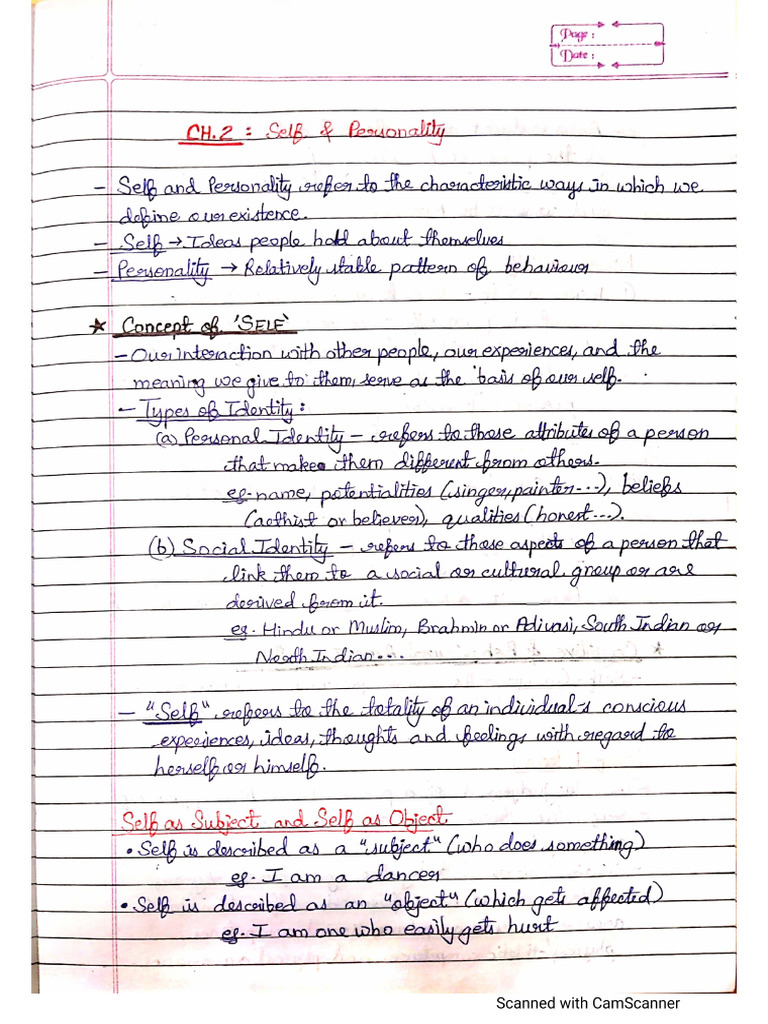 Page :
Date :
CH.2 : Self & Personality
- Self and Personality refer to the characteristic ways in which we
define our existence.
- Self → Ideas people hold about themselves
- Personality → Relatively stable pattern of behaviour
★ Concept of 'SELF'
- Our interaction with other people, our experiences, and the
meaning we give to them, serve as the basis of our self.
- Types of Identity :
(a) Personal Identity - refers to those attributes of a person
that make them different from others.
eg. name, potentialities (singer, painter...), beliefs
(aethist or believer), qualities (honest...).
(b) Social Identity - refers to those aspects of a person that
link them to a social or cultural group or are
derived from it.
eg. Hindu or Muslim, Brahmin or Adivasi, South Indian or
North Indian...
- "Self" refers to the totality of an individual's conscious
experiences, ideas, thoughts and feelings with regard to
herself or himself.
Self as Subject and Self as Object
• Self is described as a "subject" (who does something)
eg. I am a dancer
• Self is described as an "object" (which gets affected)
eg. I am one who easily gets hurt
Scanned with CamScanner